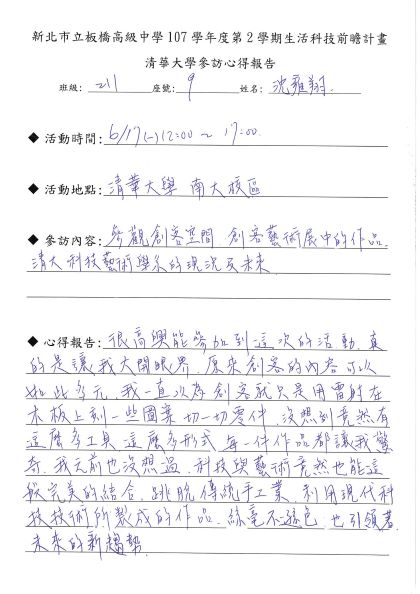 新北市立板橋高級中學 107 學年度第 2 學期生活科技前瞻計畫
清華大學參訪心得報告
班級: 211 座號: 9 姓名: 沈雍翔
◆ 活動時間: 6/17(一) 12:00 ~ 17:00
◆ 活動地點: 清華大學 南大校區
◆ 參訪內容: 參觀創客空間、創客藝術展中的作品、
清大科技藝術學系的現況及未來
◆ 心得報告: 很高興能參加到這次的活動,真
的是讓我大開眼界,原來創客的內容可以
如此多元,我一直以為創客就只是用雷射在
木板上刻一些圖案、切一切零件,沒想到竟然有
這麼多工具、這麼多形式,每一件作品都讓我驚
奇。我之前也沒想過,科技與藝術竟然也能這
般完美的結合,跳脫傳統手工業,利用現代科
技技術所製成的作品,絲毫不遜色,也引領著
未來的新趨勢。